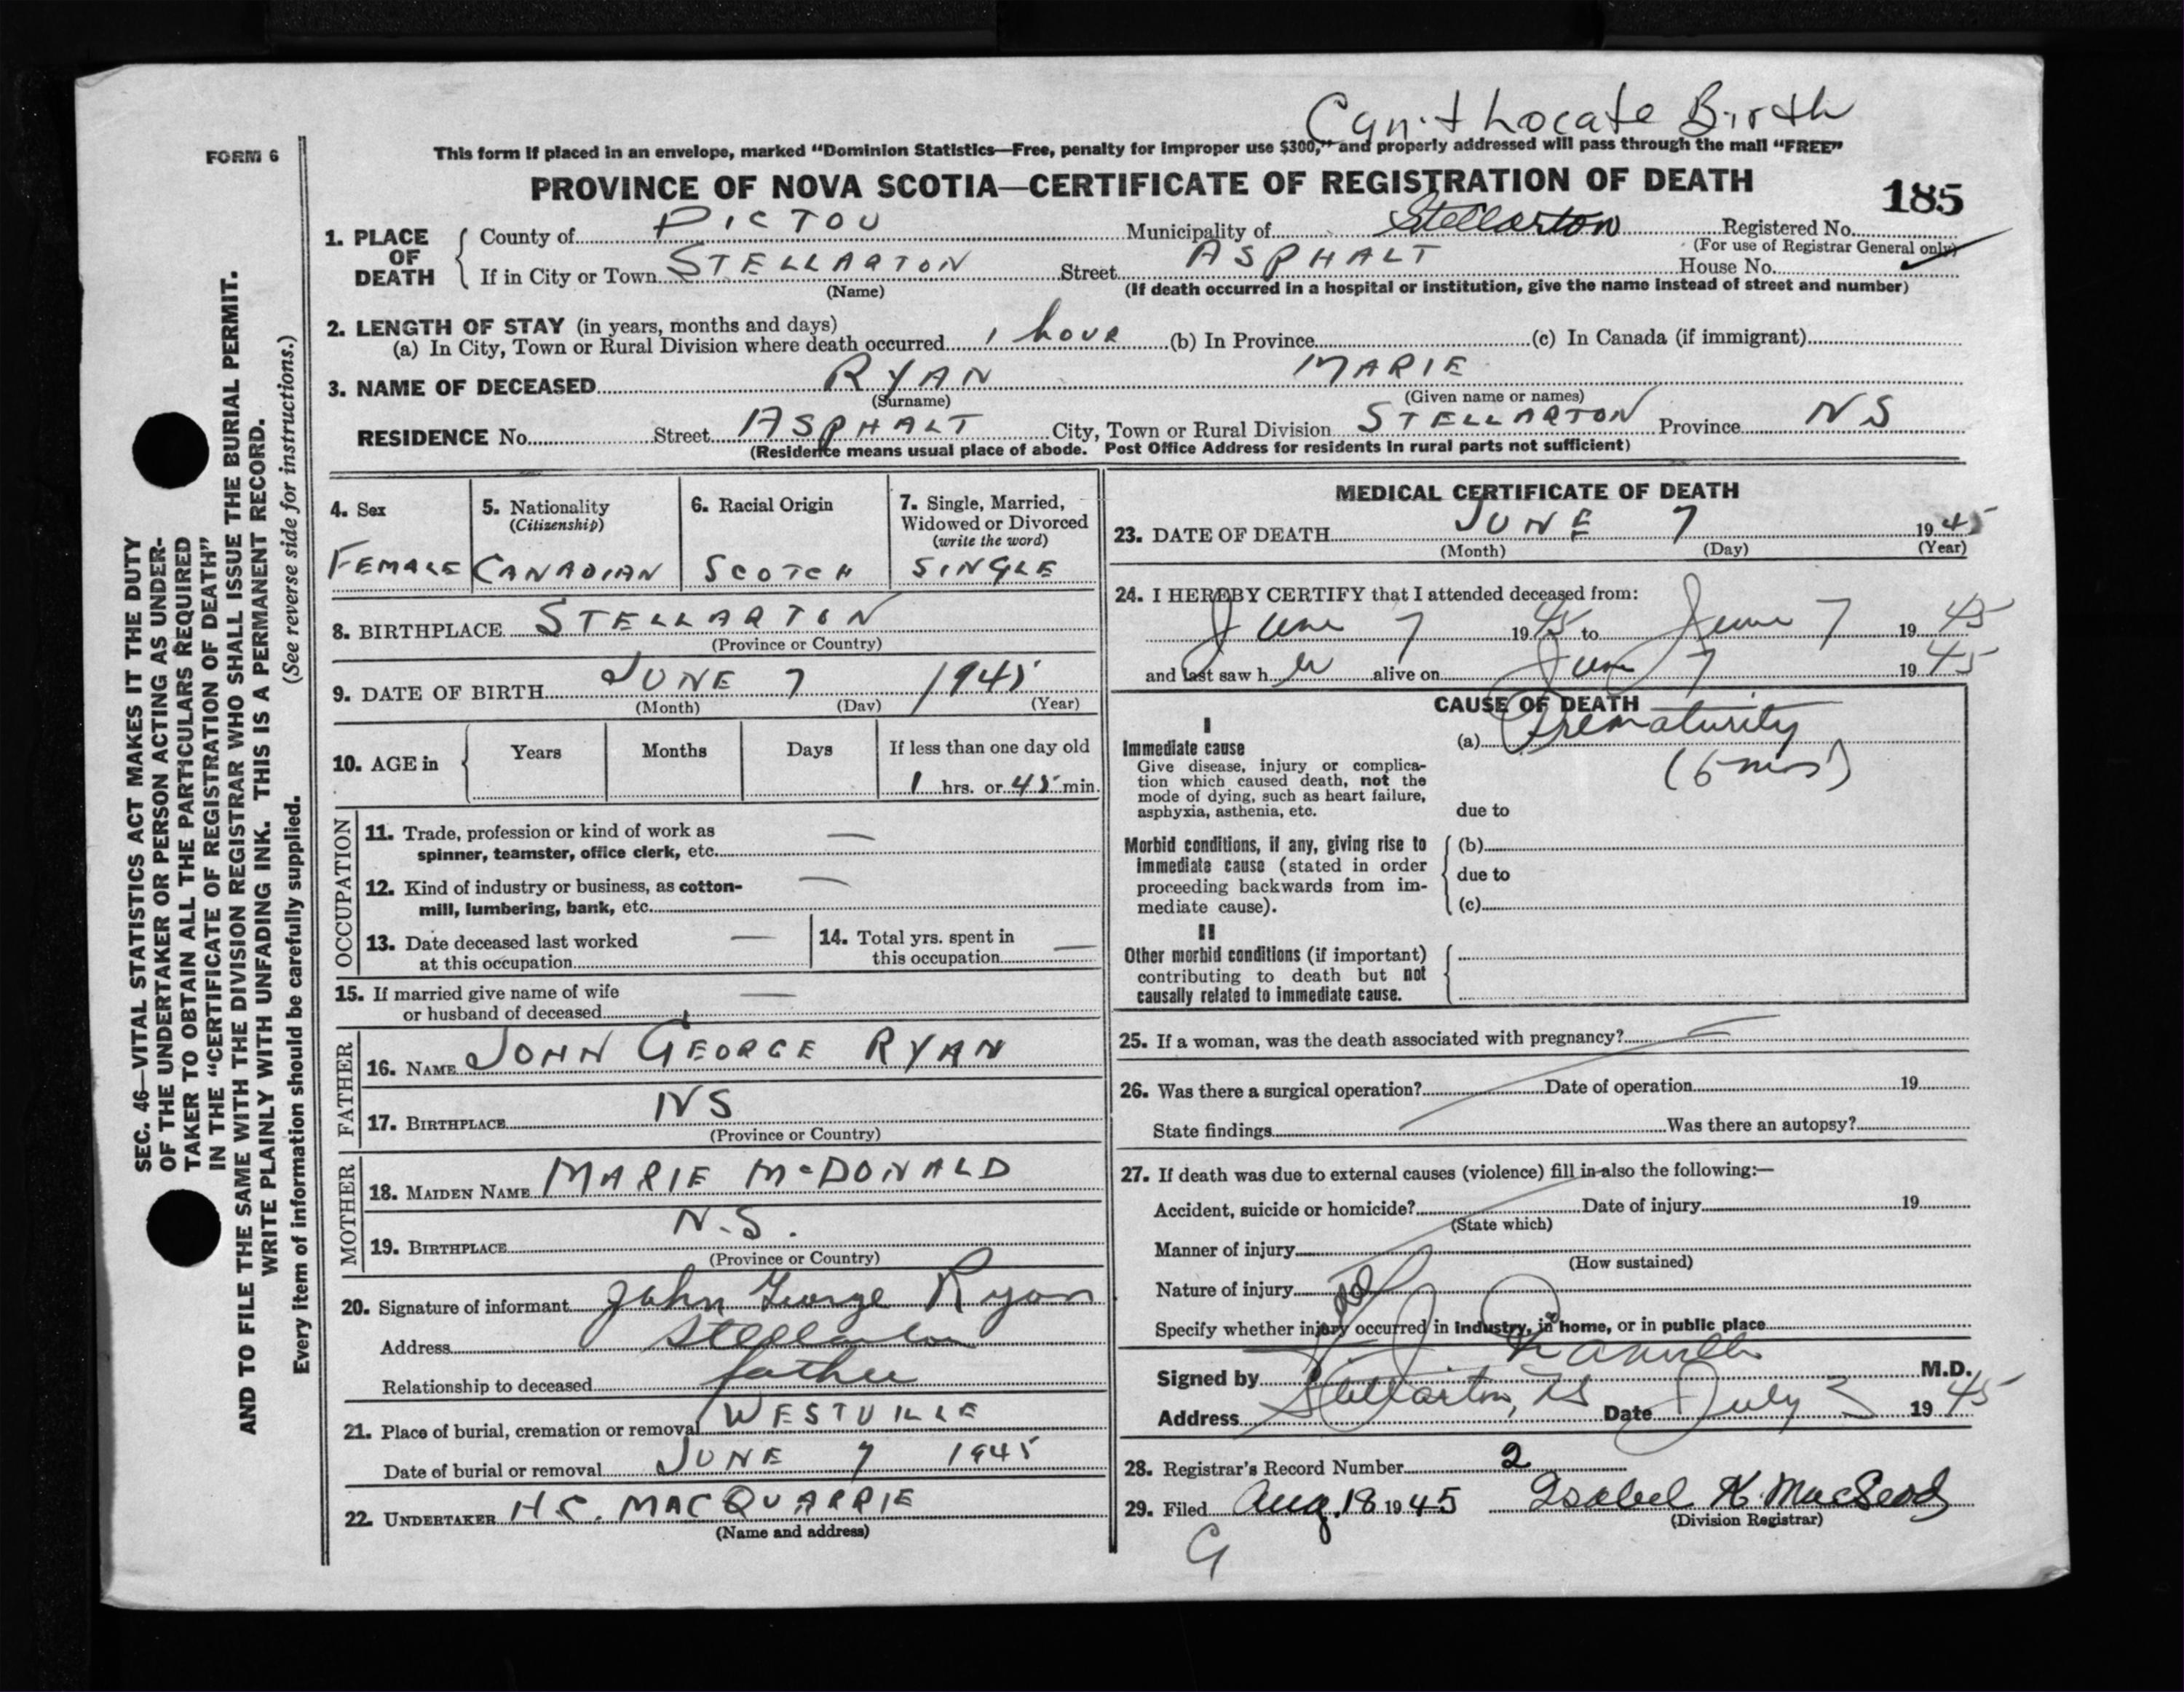 Can't Locate Birth
FORM 6
This form if placed in an envelope, marked "Dominion Statistics—Free, penalty for improper use $300," and properly addressed will pass through the mail "FREE"
PROVINCE OF NOVA SCOTIA—CERTIFICATE OF REGISTRATION OF DEATH
185
1. PLACE OF DEATH
County of PICTOU Municipality of Stellarton Registered No.
(For use of Registrar General only)
If in City or Town STELLARTON Street ASPHALT House No.
(Name) (If death occurred in a hospital or institution, give the name instead of street and number)
2. LENGTH OF STAY (in years, months and days)
(a) In City, Town or Rural Division where death occurred 1 hour (b) In Province (c) In Canada (if immigrant)
3. NAME OF DECEASED RYAN MARIE
(Surname) (Given name or names)
RESIDENCE No. Street ASPHALT City, Town or Rural Division STELLARTON Province NS
(Residence means usual place of abode. Post Office Address for residents in rural parts not sufficient)
4. Sex
FEMALE
5. Nationality
(Citizenship)
CANADIAN
6. Racial Origin
SCOTCH
7. Single, Married,
Widowed or Divorced
(write the word)
SINGLE
8. BIRTHPLACE STELLARTON
(Province or Country)
9. DATE OF BIRTH JUNE 7 1945
(Month) (Day) (Year)
10. AGE in Years Months Days If less than one day old
1 hrs. or 45 min.
OCCUPATION
11. Trade, profession or kind of work as —
spinner, teamster, office clerk, etc.
12. Kind of industry or business, as cotton- —
mill, lumbering, bank, etc.
13. Date deceased last worked —
at this occupation
14. Total yrs. spent in
this occupation —
15. If married give name of wife —
or husband of deceased
FATHER
16. NAME JOHN GEORGE RYAN
17. BIRTHPLACE NS
(Province or Country)
MOTHER
18. MAIDEN NAME MARIE McDONALD
19. BIRTHPLACE N.S.
(Province or Country)
20. Signature of informant John George Ryan
Address Stellarton
Relationship to deceased father
21. Place of burial, cremation or removal WESTVILLE
Date of burial or removal JUNE 7 1945
22. UNDERTAKER H.C. MACQUARRIE
(Name and address)
MEDICAL CERTIFICATE OF DEATH
23. DATE OF DEATH JUNE 7 1945
(Month) (Day) (Year)
24. I HEREBY CERTIFY that I attended deceased from:
June 7 1945 to June 7 1945
and last saw her alive on June 7 1945
CAUSE OF DEATH
I
Immediate cause
Give disease, injury or complica-
tion which caused death, not the
mode of dying, such as heart failure,
asphyxia, asthenia, etc.
(a) Prematurity
(6 mos)
due to
Morbid conditions, if any, giving rise to
immediate cause (stated in order
proceeding backwards from im-
mediate cause).
(b)
due to
(c)
II
Other morbid conditions (if important)
contributing to death but not
causally related to immediate cause.
25. If a woman, was the death associated with pregnancy?
26. Was there a surgical operation? Date of operation 19
State findings Was there an autopsy?
27. If death was due to external causes (violence) fill in also the following:—
Accident, suicide or homicide? Date of injury 19
(State which)
Manner of injury
(How sustained)
Nature of injury
Specify whether injury occurred in industry, in home, or in public place
Signed by M.D.
Address Stellarton, NS Date July 3 1945
28. Registrar's Record Number 2
29. Filed Aug. 18 1945 Isabel K. MacLeod
(Division Registrar)
G
SEC. 46—VITAL STATISTICS ACT MAKES IT THE DUTY
OF THE UNDERTAKER OR PERSON ACTING AS UNDER-
TAKER TO OBTAIN ALL THE PARTICULARS REQUIRED
IN THE "CERTIFICATE OF REGISTRATION OF DEATH"
AND TO FILE THE SAME WITH THE DIVISION REGISTRAR WHO SHALL ISSUE THE BURIAL PERMIT.
WRITE PLAINLY WITH UNFADING INK. THIS IS A PERMANENT RECORD.
Every item of information should be carefully supplied. (See reverse side for instructions.)